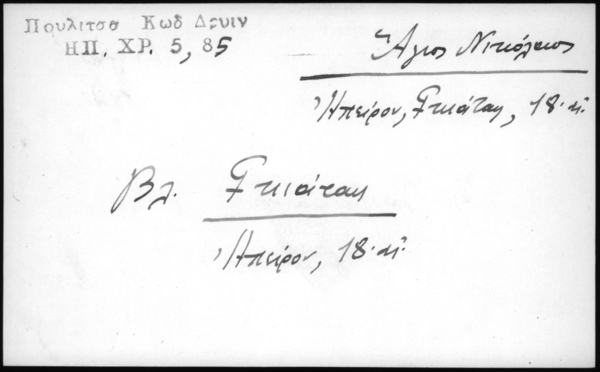 Πουλιτσα Κωδ Δρυιν
ΗΠ. ΧΡ. 5, 85
Ἅγιος Νικόλαος
Ἠπείρου, Γκιάτας, 18. αἰ.
Βλ. Γκιάτας
Ἠπείρου, 18. αἰ.